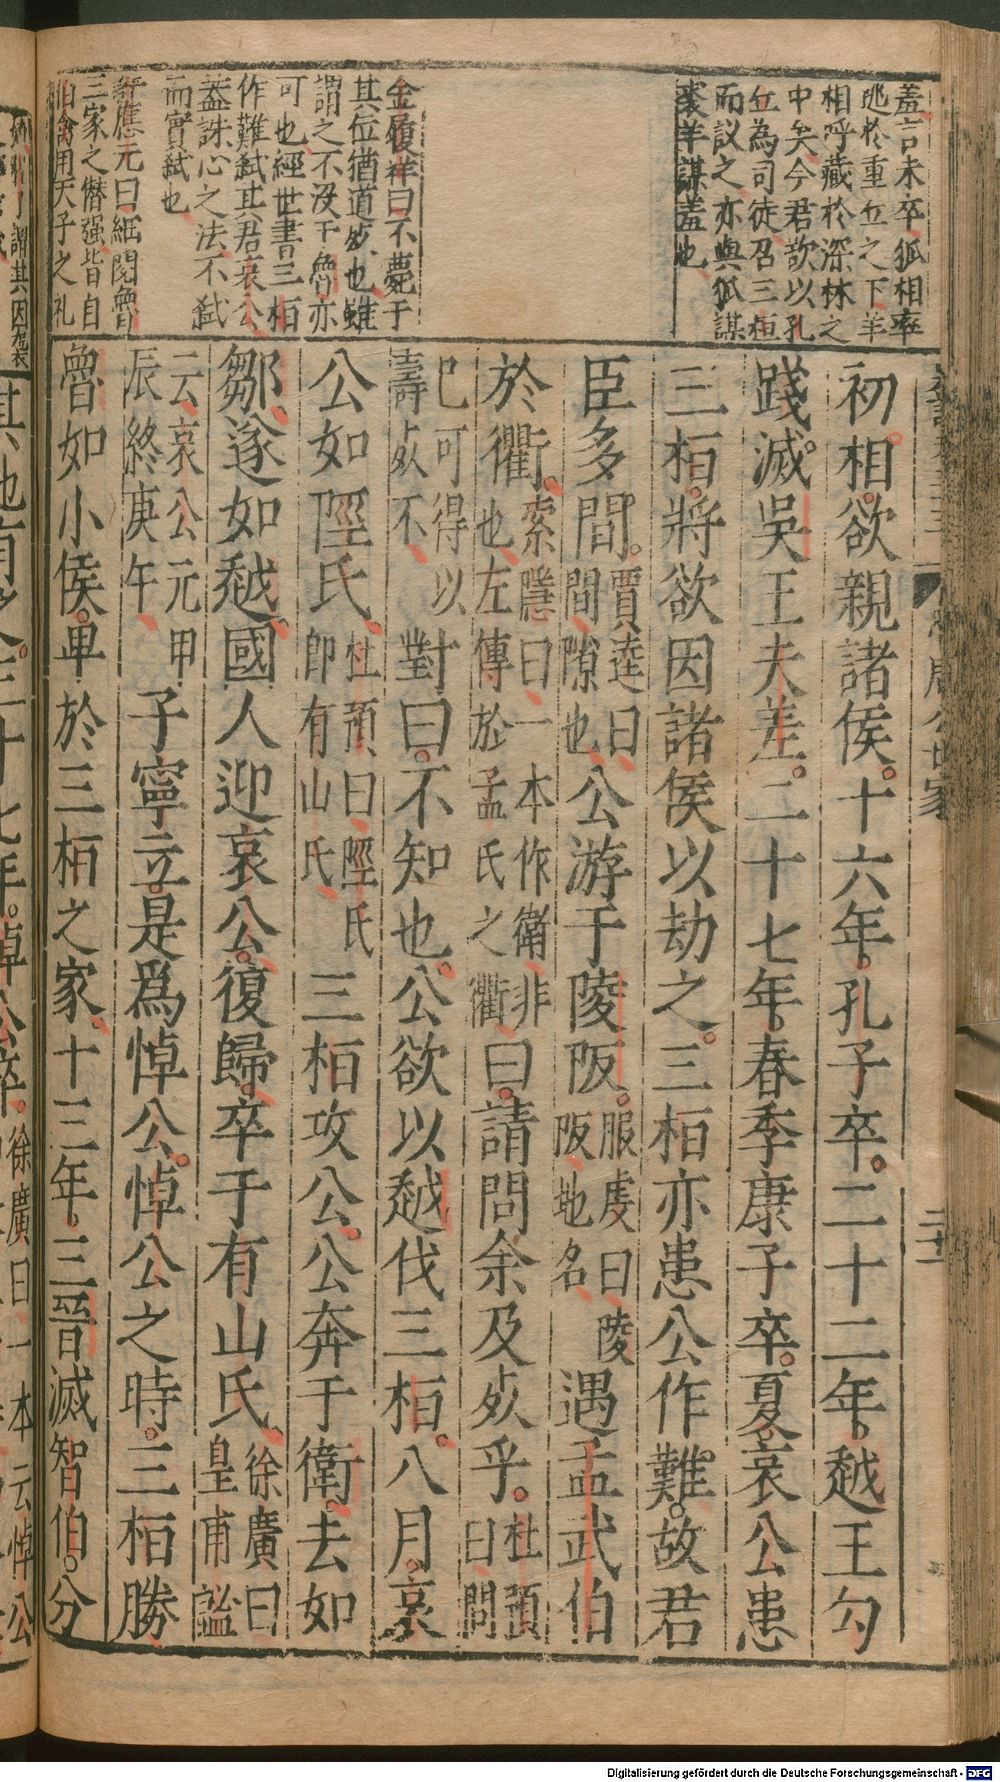 羞言未卒狐相率
逃於重丘之下羊
相呼藏於深林之
中矣今君欲以孔
丘為司徒召三桓
而議之亦與狐謀
裘羊謀羞也
金履祥曰不薨于
其位猶道死也雖
謂之不沒于魯亦
可也經世書三桓
作難弒其君哀公
蓋誅心之法不弒
而實弒也
許應元曰細閱魯
三家之僭强皆自
伯禽用天子之礼
初相欲親諸侯十六年孔子卒二十二年越王勾
踐滅吳王夫差二十七年春季康子卒夏哀公患
三桓將欲因諸侯以劫之三桓亦患公作難故君
臣多間賈逵曰間隙也公游于陵阪服虔曰陵阪地名遇孟武伯
於衢索隱曰一本作衛非也左傳於孟氏之衢曰請問余及死乎杜預曰問
已可得以壽死不對曰不知也公欲以越伐三桓八月哀
公如陘氏杜預曰陘氏即有山氏三桓攻公公奔于衛去如
鄒遂如越國人迎哀公復歸卒于有山氏徐廣曰皇甫謐
云哀公元甲辰終庚午子寧立是爲悼公悼公之時三桓勝
魯如小侯卑於三桓之家十三年三晉滅智伯分
Digitalisierung gefördert durch die Deutsche Forschungsgemeinschaft - DFG